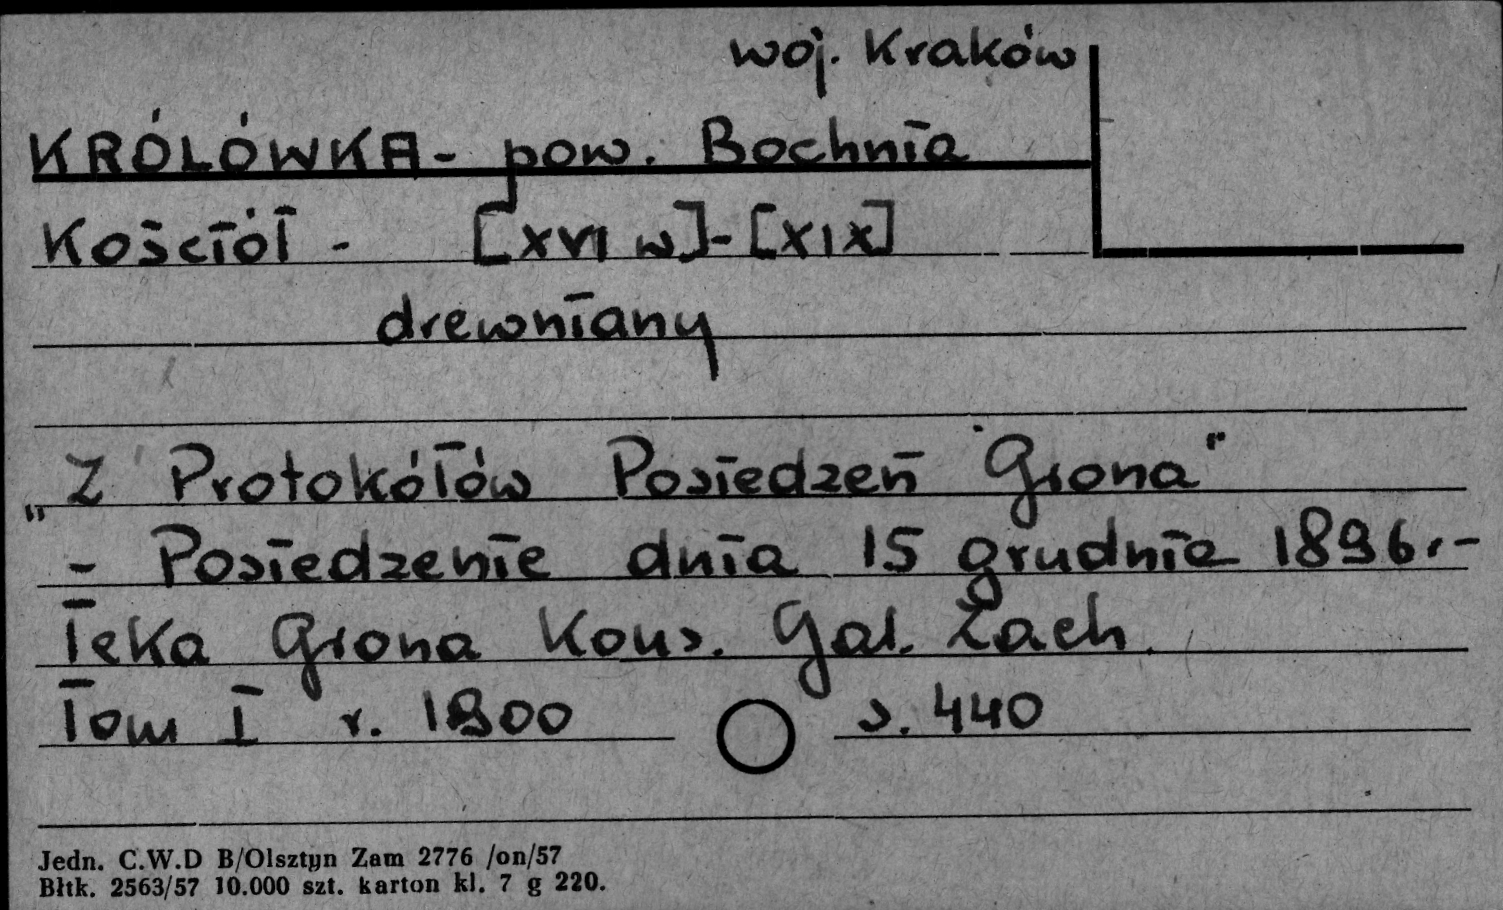 woj. Kraków
KRÓLÓWKA - pow. Bochnia
Kościół - [XVI w] - [XIX]
drewniany
„Z Protokółów Posiedzeń "Grona"
- Posiedzenie dnia 15 grudnia 1896r. -
Teka Grona Kons. Gal. Zach.
Tom I r. 1900 s. 440
Jedn. C.W.D B/Olsztyn Zam 2776 /on/57
Błtk. 2563/57 10.000 szt. karton kl. 7 g 220.